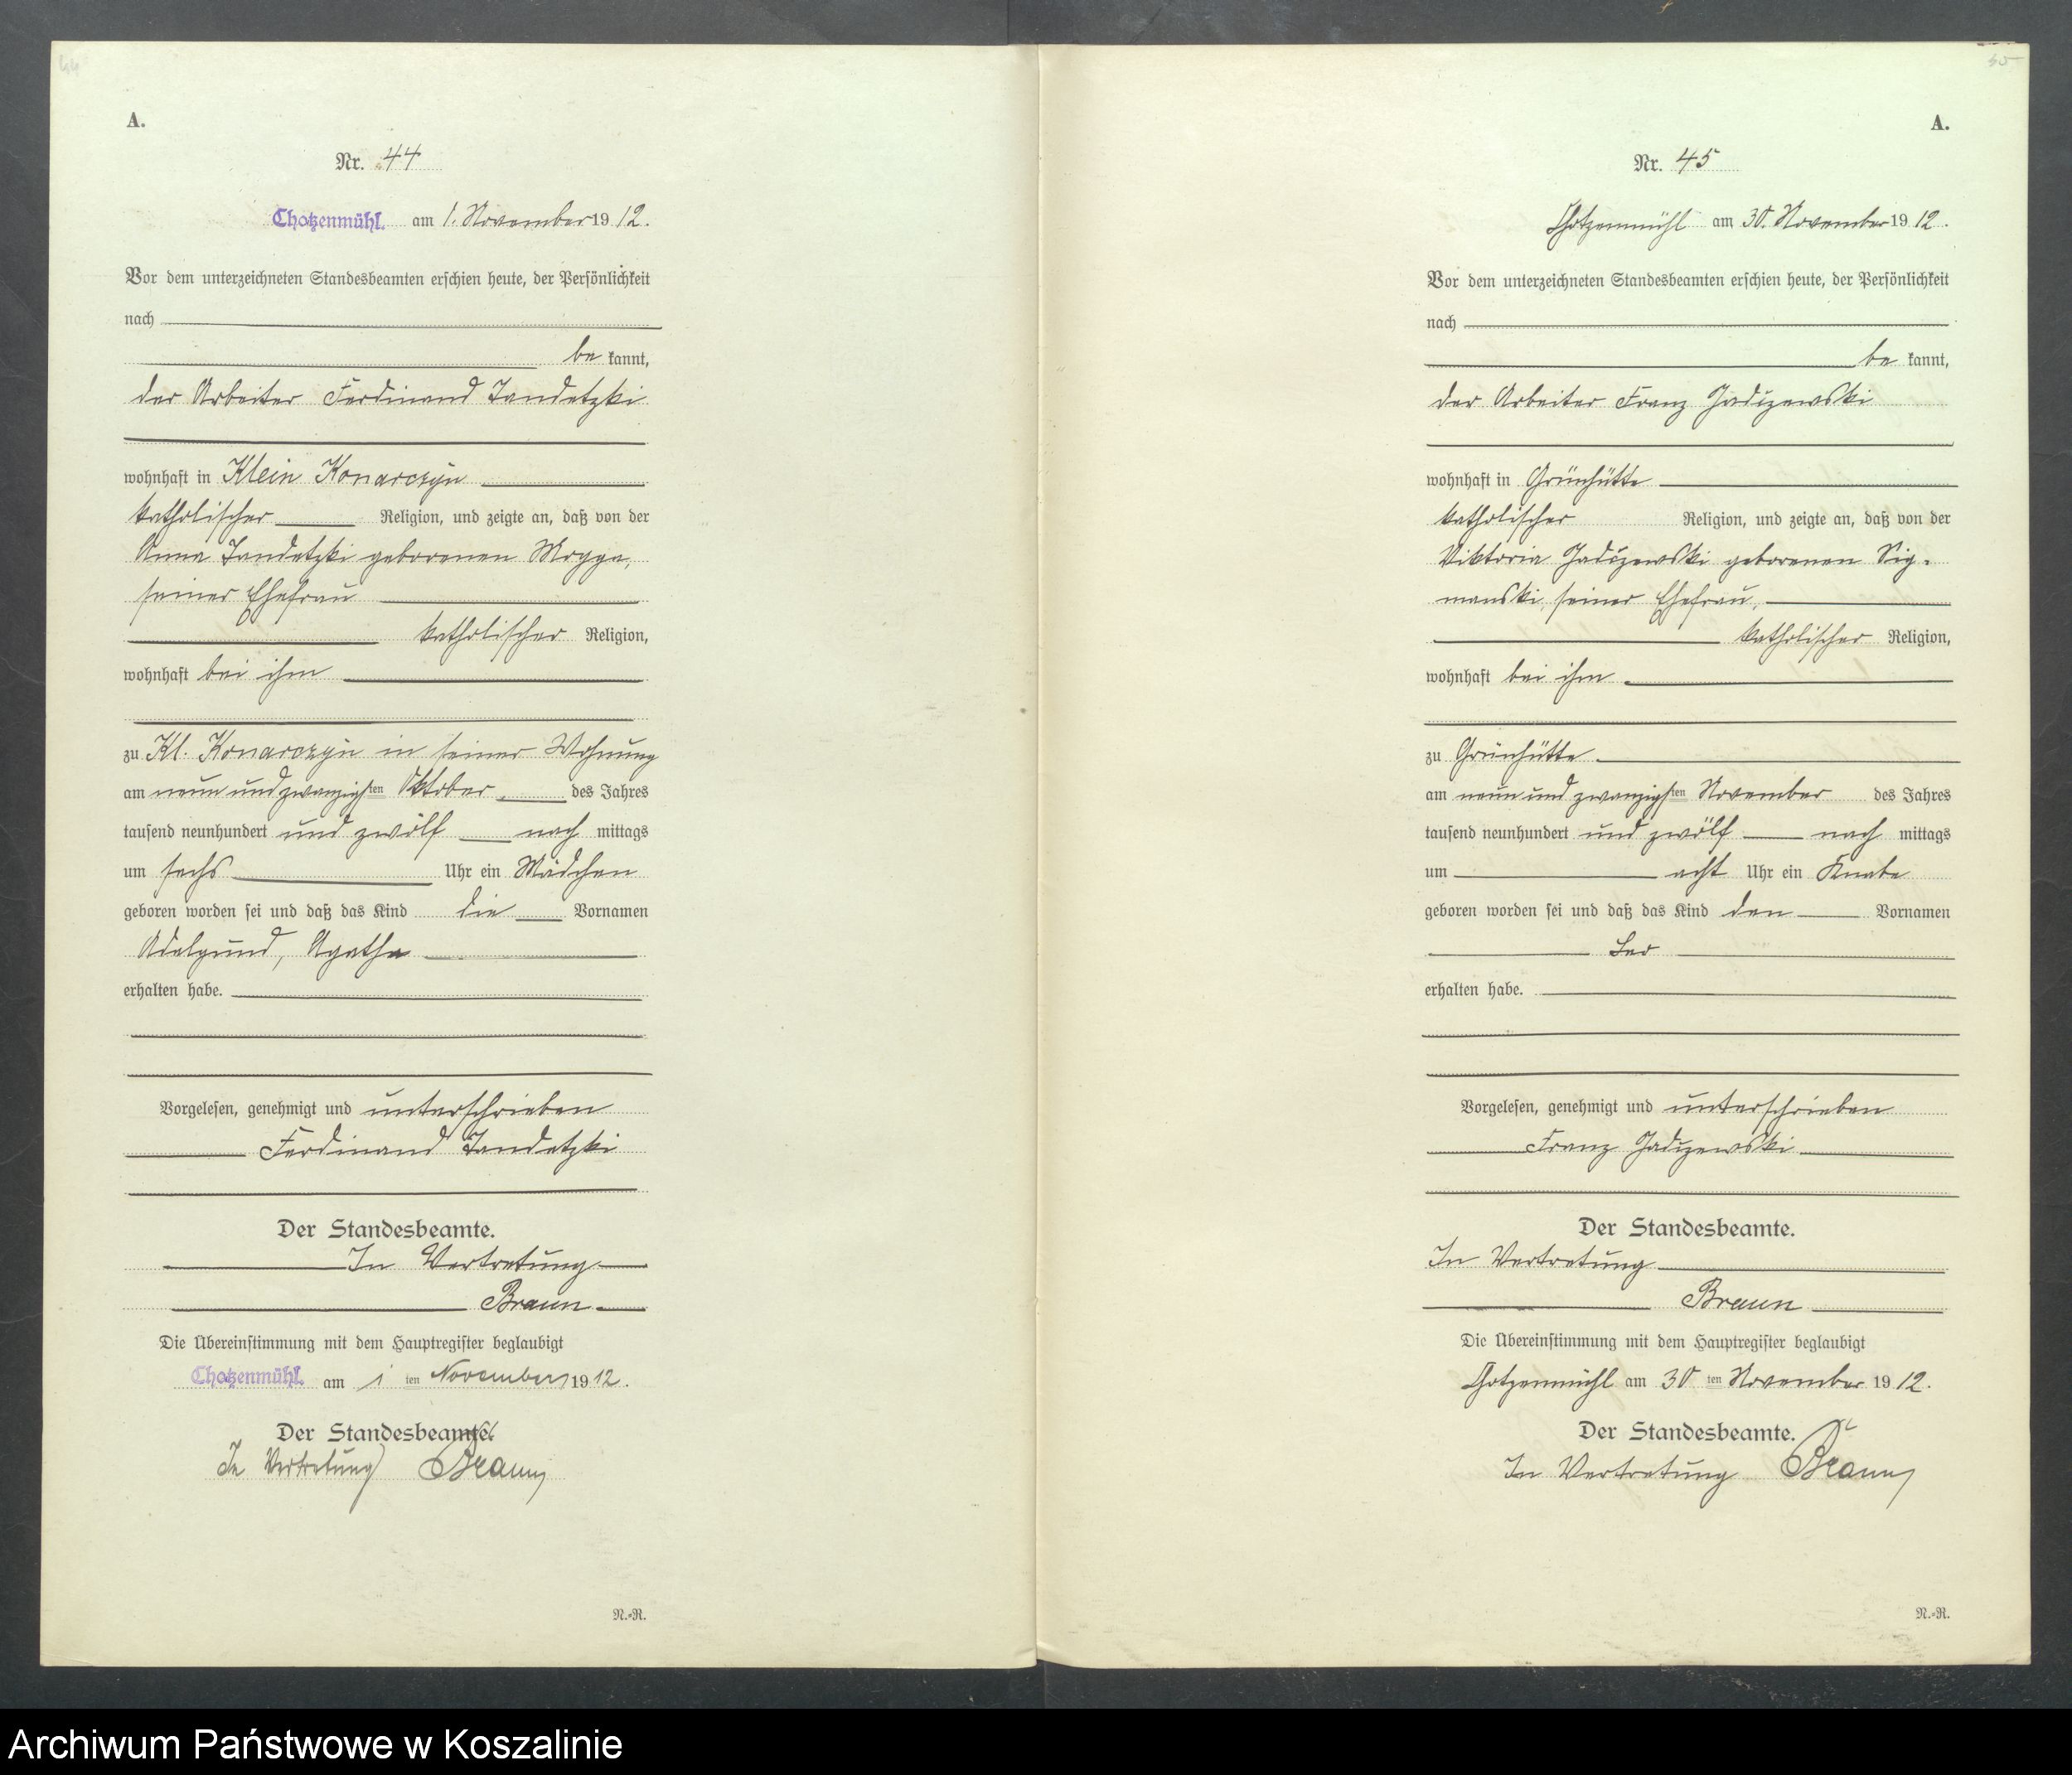 A.
Nr. 44
Chotzenmühl. am 1. November 1912.
Vor dem unterzeichneten Standesbeamten erschien heute, der Persönlichkeit
nach
be kannt,
der Arbeiter Ferdinand Tandetzki
wohnhaft in Klein Konarczyn
katholischer Religion, und zeigte an, daß von der
Anna Tandetzki geborenen Mogga,
seiner Ehefrau
katholischer Religion,
wohnhaft bei ihm
zu Kl. Konarczyn in seiner Wohnung
am neun und zwanzigsten Oktober des Jahres
tausend neunhundert und zwölf nach mittags
um sechs Uhr ein Mädchen
geboren worden sei und daß das Kind die Vornamen
Adelgund, Agatha
erhalten habe.
Vorgelesen, genehmigt und unterschrieben
Ferdinand Tandetzki
Der Standesbeamte.
In Vertretung
Braun
Die Übereinstimmung mit dem Hauptregister beglaubigt
Chotzenmühl. am 1 ten November 1912.
Der Standesbeamte.
In Vertretung Braun
N.-R.
A.
Nr. 45
Chotzenmühl am 30. November 1912.
Vor dem unterzeichneten Standesbeamten erschien heute, der Persönlichkeit
nach
be kannt,
der Arbeiter Franz
wohnhaft in Grünhütte
katholischer Religion, und zeigte an, daß von der
Viktoria geborenen Sig-
manski, seiner Ehefrau,
katholischer Religion,
wohnhaft bei ihm
zu Grünhütte
am neun und zwanzigsten November des Jahres
tausend neunhundert und zwölf nach mittags
um acht Uhr ein Knabe
geboren worden sei und daß das Kind den Vornamen
Leo
erhalten habe.
Vorgelesen, genehmigt und unterschrieben
Franz
Der Standesbeamte.
In Vertretung
Braun
Die Übereinstimmung mit dem Hauptregister beglaubigt
Chotzenmühl am 30 ten November 1912.
Der Standesbeamte.
In Vertretung Braun
N.-R.
Archiwum Państwowe w Koszalinie